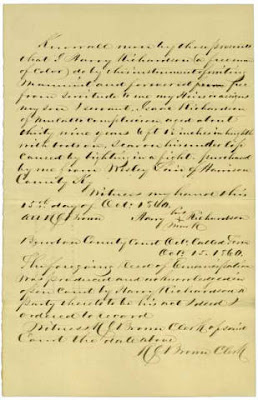 Know all men by these presents
that I Harry Richardson (a free man
of Color) do by this instrument of writing
Manumit and forever free
from servitude to me my Heirs or assigns
my son & servant, Isaac Richardson
of Mulatto Complexion, aged about
thirty nine years 5 ft 8 inches in height
with boots on, scar on his under lip
caused by biting in a fight, purchased
by me from Wesley of Harrison
County Ky.
Witness my hand this
15th day of Oct. 1860.
Att R G Brown Harry his X mark Richardson
County Court Oct. Called Term
Oct 15. 1860.
The foregoing Deed of Emancipation
was produced and acknowledged in
open Court by Harry Richardson a
party thereto to be his act & deed &
ordered to record
Witness R G Brown Clerk of said
Court the date above
R G Brown Clerk